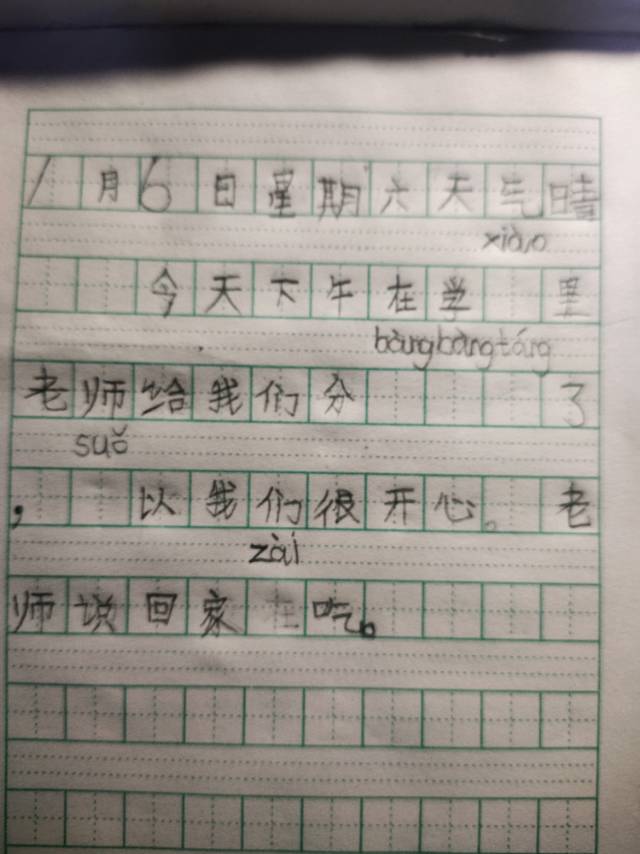 1月6日星期六天气晴
xiào
今天下午在学 里
bàngbàngtáng
老师给我们分 了
suǒ
, 以我们很开心。老
zài
师说回家 吃。